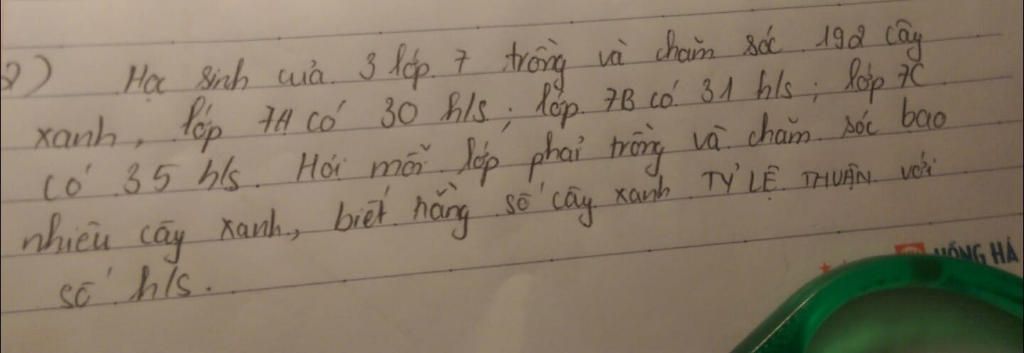 2) Học sinh của 3 lớp 7 trồng và chăm sóc 192 cây
xanh, lớp 7A có 30 h/s; lớp 7B có 31 h/s; lớp 7C
có 35 h/s. Hỏi mỗi lớp phải trồng và chăm sóc bao
nhiêu cây xanh, biết rằng số cây xanh TỶ LỆ THUẬN với
số h/s.
HỒNG HÀ